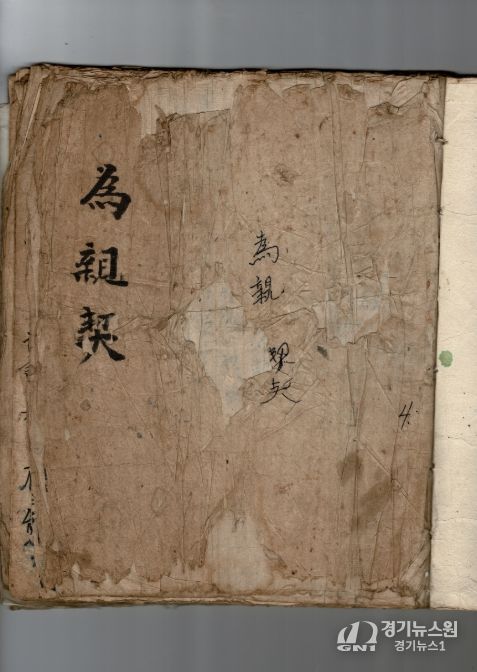 為親契
為親 契
4.
경기뉴스원
GNI 경기뉴스1